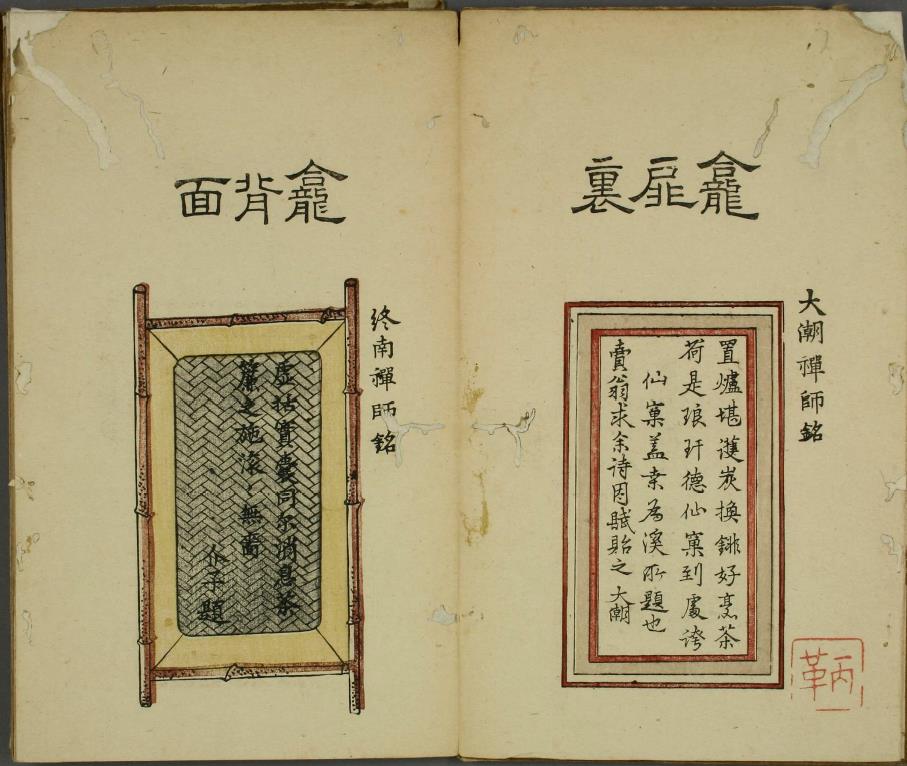 龕扉裏
大潮禪師銘
置爐堪護炭換銚好烹茶
荷是琅玕德仙窠到處誇
仙窠蓋桒為溪所題也
賣翁求余詩因賦貽之 大潮
龕背面
終南禪師銘
虛拈實囊同尔消息茶
簾之施滾〻無嗇
題